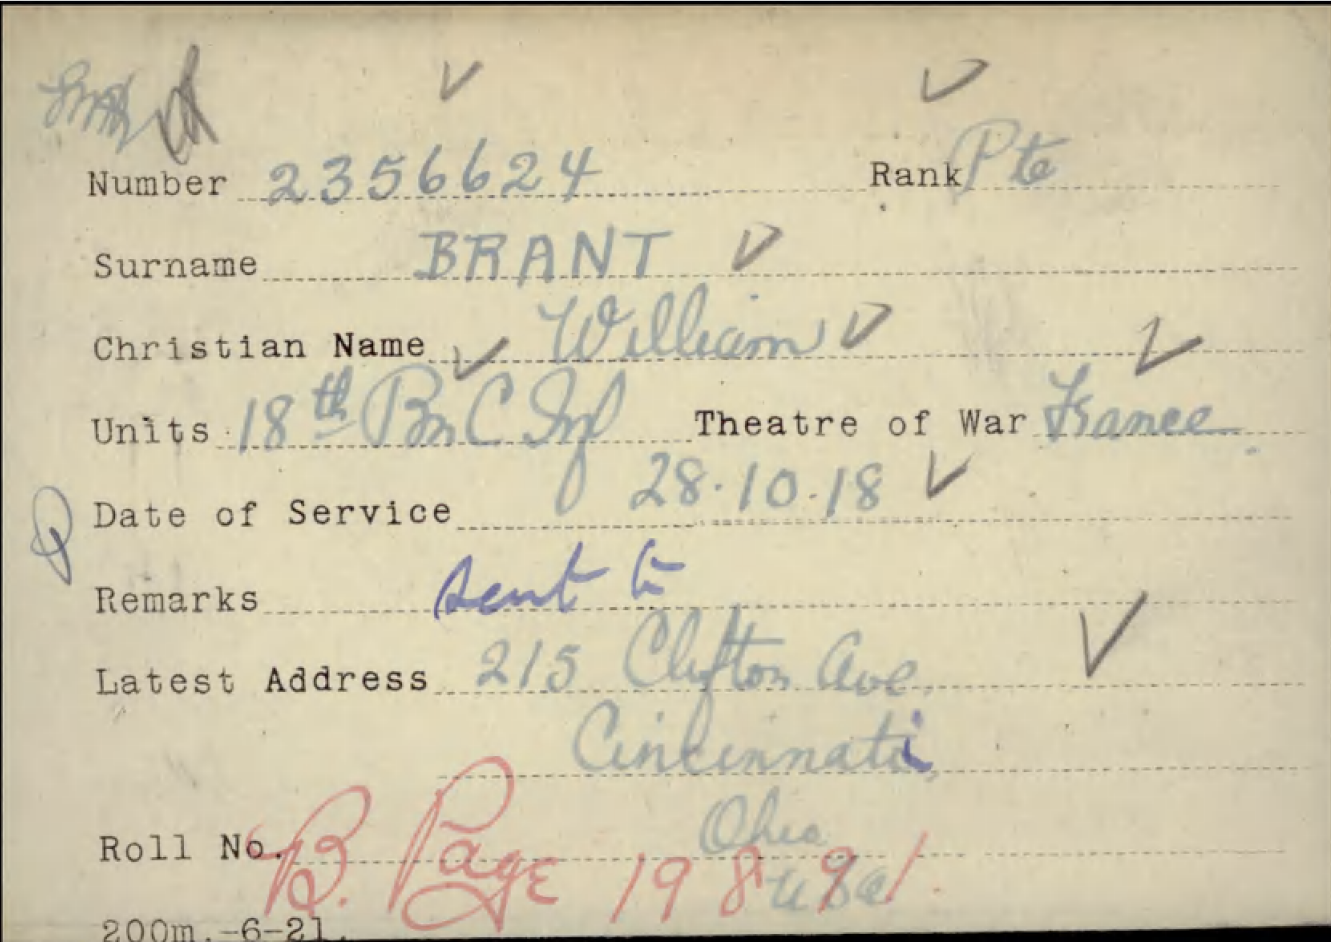 Number 2356624 Rank Pte
Surname BRANT
Christian Name William
Units 18th Bn C Inf Theatre of War France
Date of Service 28.10.18
Remarks sent to
Latest Address 215 Clifton Ave.
Cincinnati,
Ohio
USA
Roll No. B. Page 19891.
200m.-6-21.